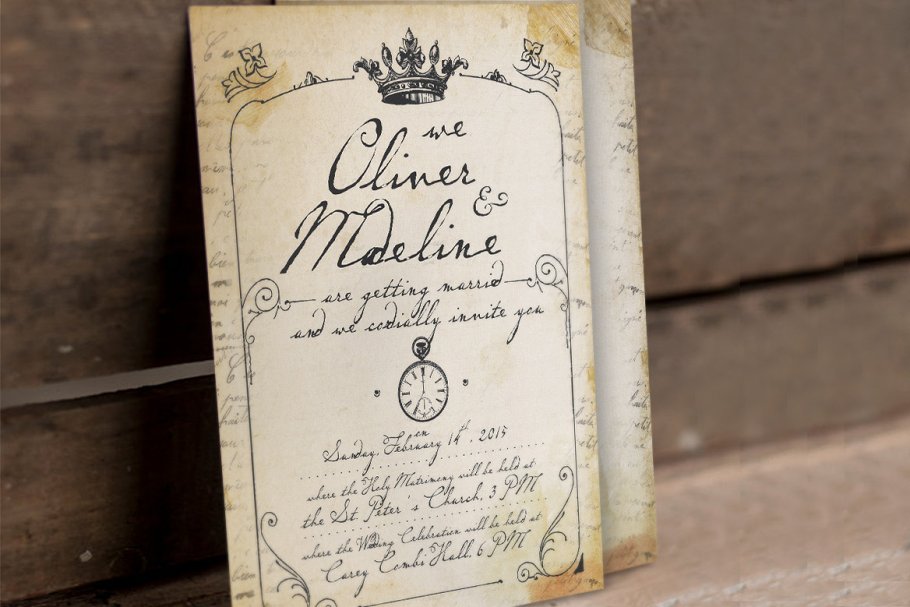 we
Oliver
&
Madeline
are getting married
and we cordially invite you
on
Sunday, February 14th, 2015
where the Holy Matrimony will be held at
the St Peter's Church, 3 PM
where the Wedding Celebration will be held at
Carey Combi Hall, 6 PM